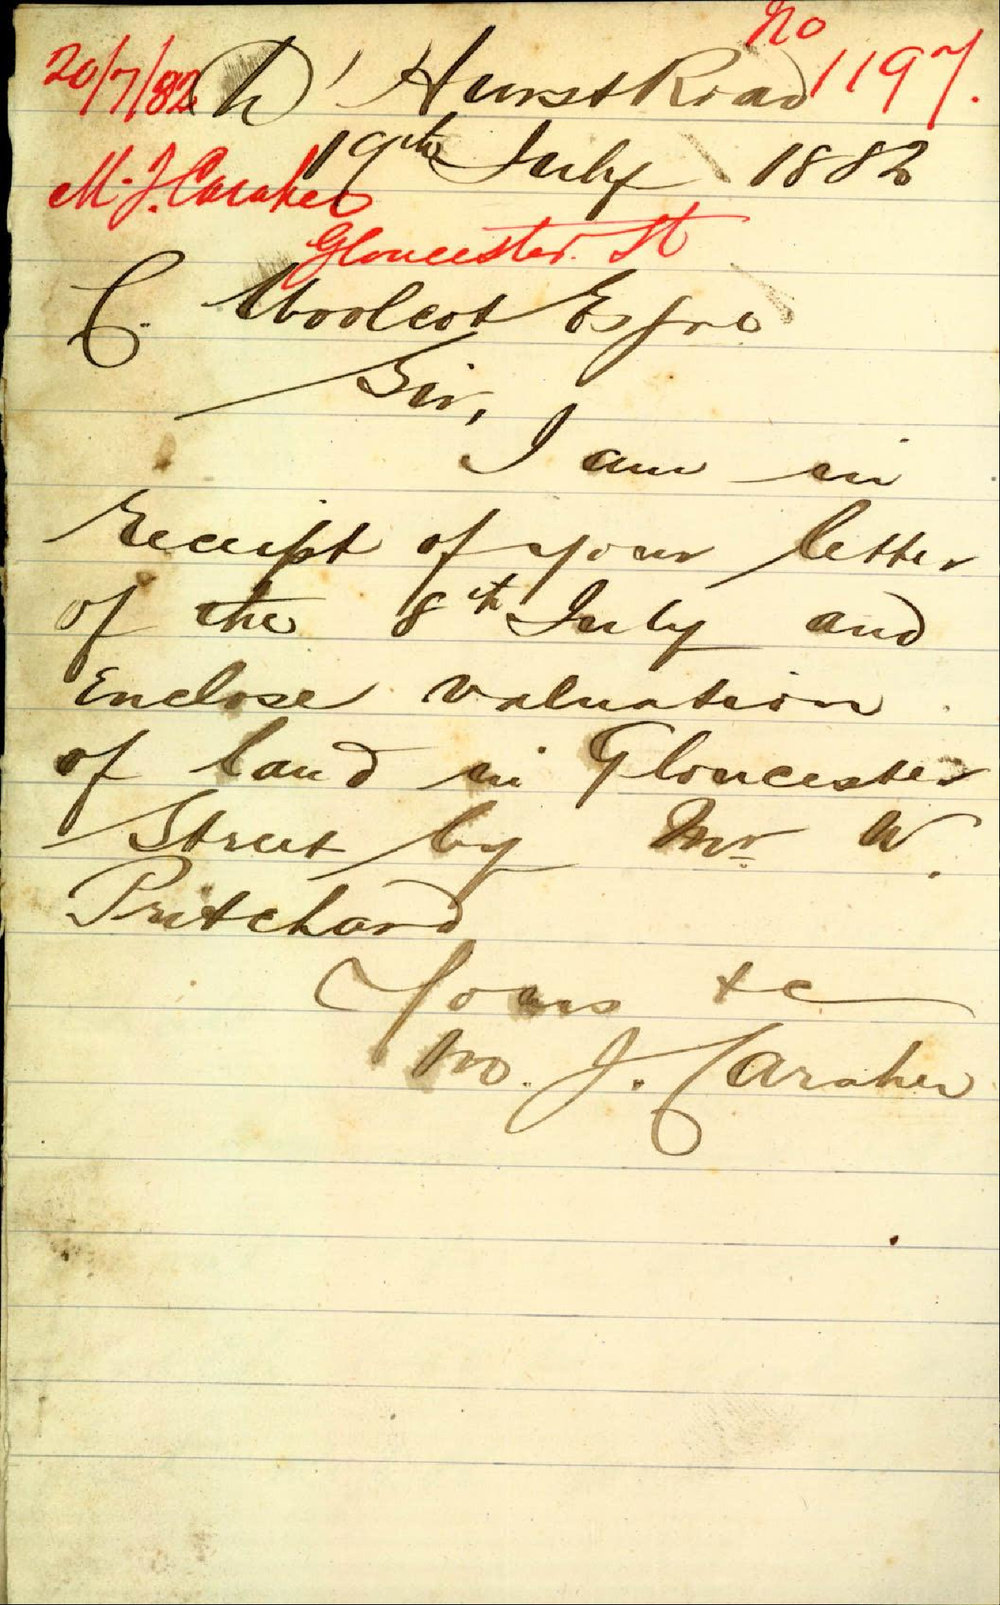 No
20/7/82 Hurst Road 1197.
19th July 1882
M. J. Caraher
Gloucester St
C. Woolcot Esqre
Sir,
I am in
Receipt of your letter
of the 8th July and
Enclose valuation
of land in Gloucester
Street by Mr W.
Pritchard
Yours &c
M. J. Caraher